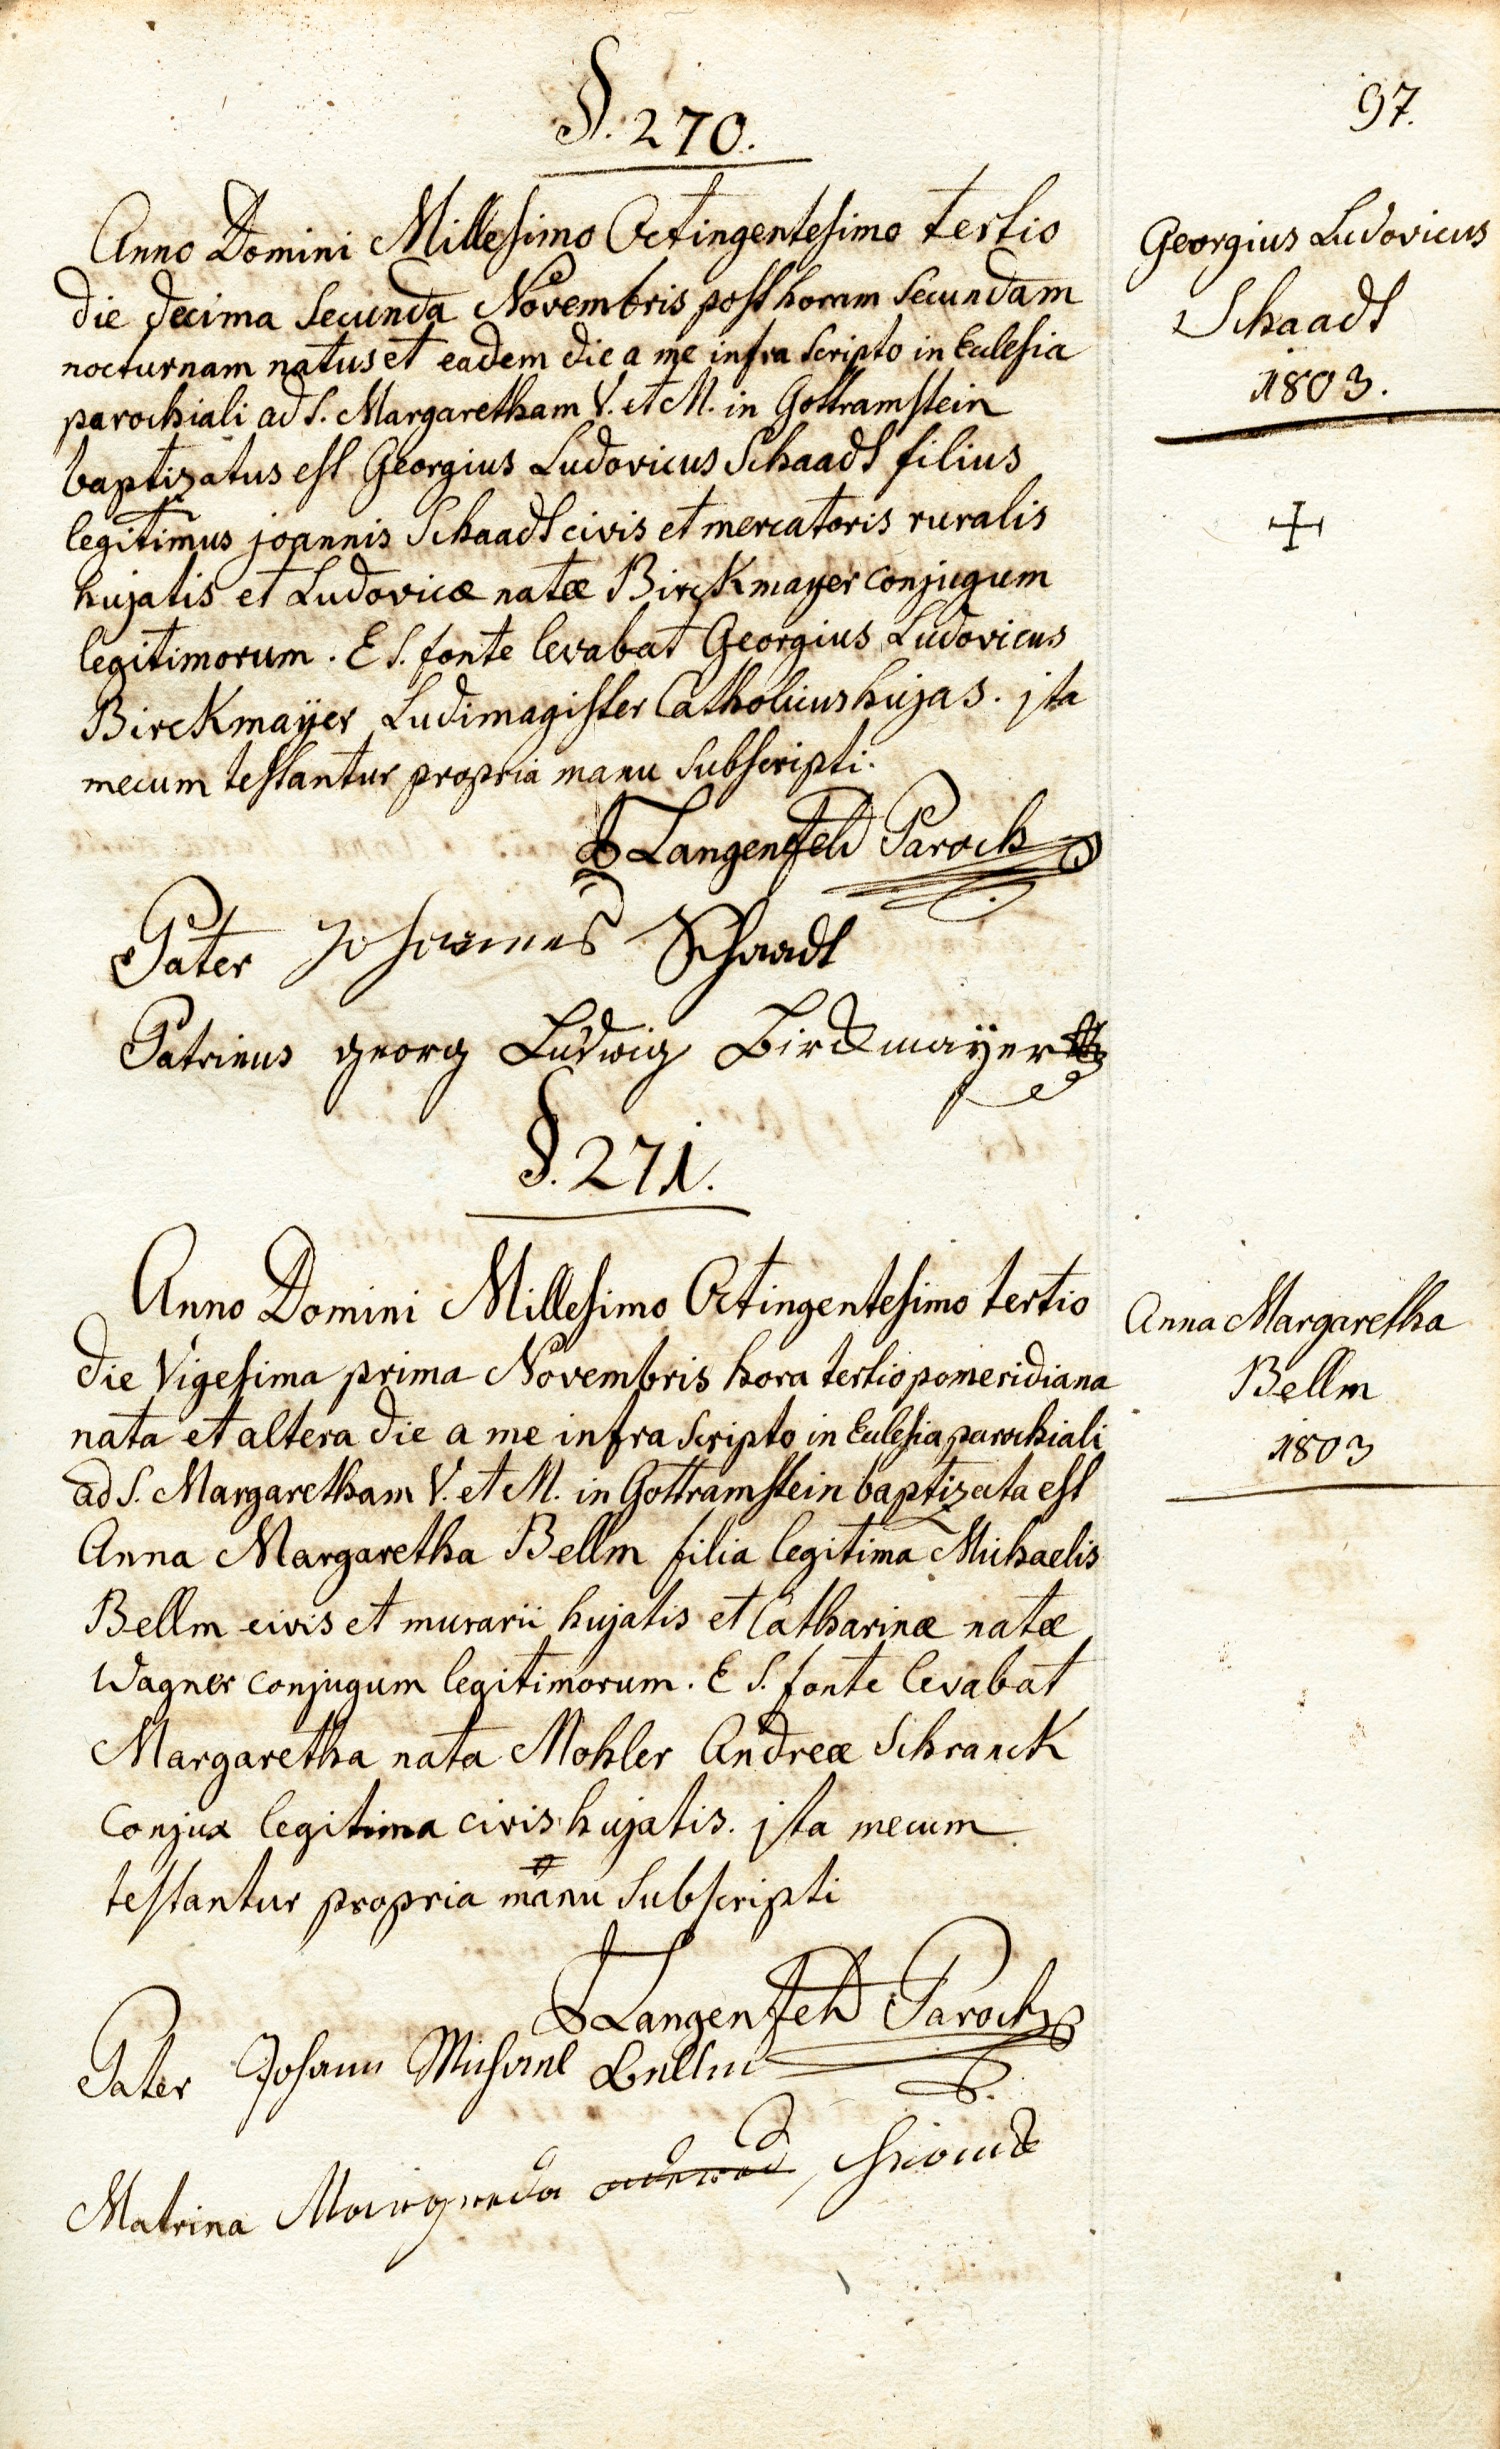 97.
§. 270.
Anno Domini Millesimo Octingentesimo tertio
die decima secunda Novembris post horam secundam
nocturnam natus et eadem die a me infra scripto in Ecclesia
parochiali ad S. Margaretham V. et M. in Gottramstein
baptizatus est Georgius Ludovicus Schaadt filius
legitimus joannis Schaadt civis et mercatoris ruralis
hujatis et Ludovicæ natæ Birckmayer conjugum
legitimorum. E S. fonte levabat Georgius Ludovicus
Birckmaÿer Ludimagister Catholicus hujas. jta
mecum testantur propria manu subscripti.
Langenfeld Paroch
Pater Johannes Schaadt
Patrinus georg Ludwig Birckmaÿer
Georgius Ludovicus
Schaadt
1803.
§. 271.
Anno Domini Millesimo Octingentesimo tertio
die Vigesima prima Novembris hora tertio pomeridiana
nata et altera die a me infra scripto in Ecclesia parochiali
ad S. Margaretham V. et M. in Gottramstein baptizata est
Anna Margaretha Bellm filia legitima Michaelis
Bellm civis et murarii hujatis et Catharinæ natæ
Wagner conjugum legitimorum. E S. fonte levabat
Margaretha nata Mohler Andreæ Schranck
Conjux legitima civis hujatis. jta mecum
testantur propria manu subscripti
Langenfeld Paroch
Pater Johann Michael Bellm
Matrina Margreda
Anna Margaretha
Bellm
1803